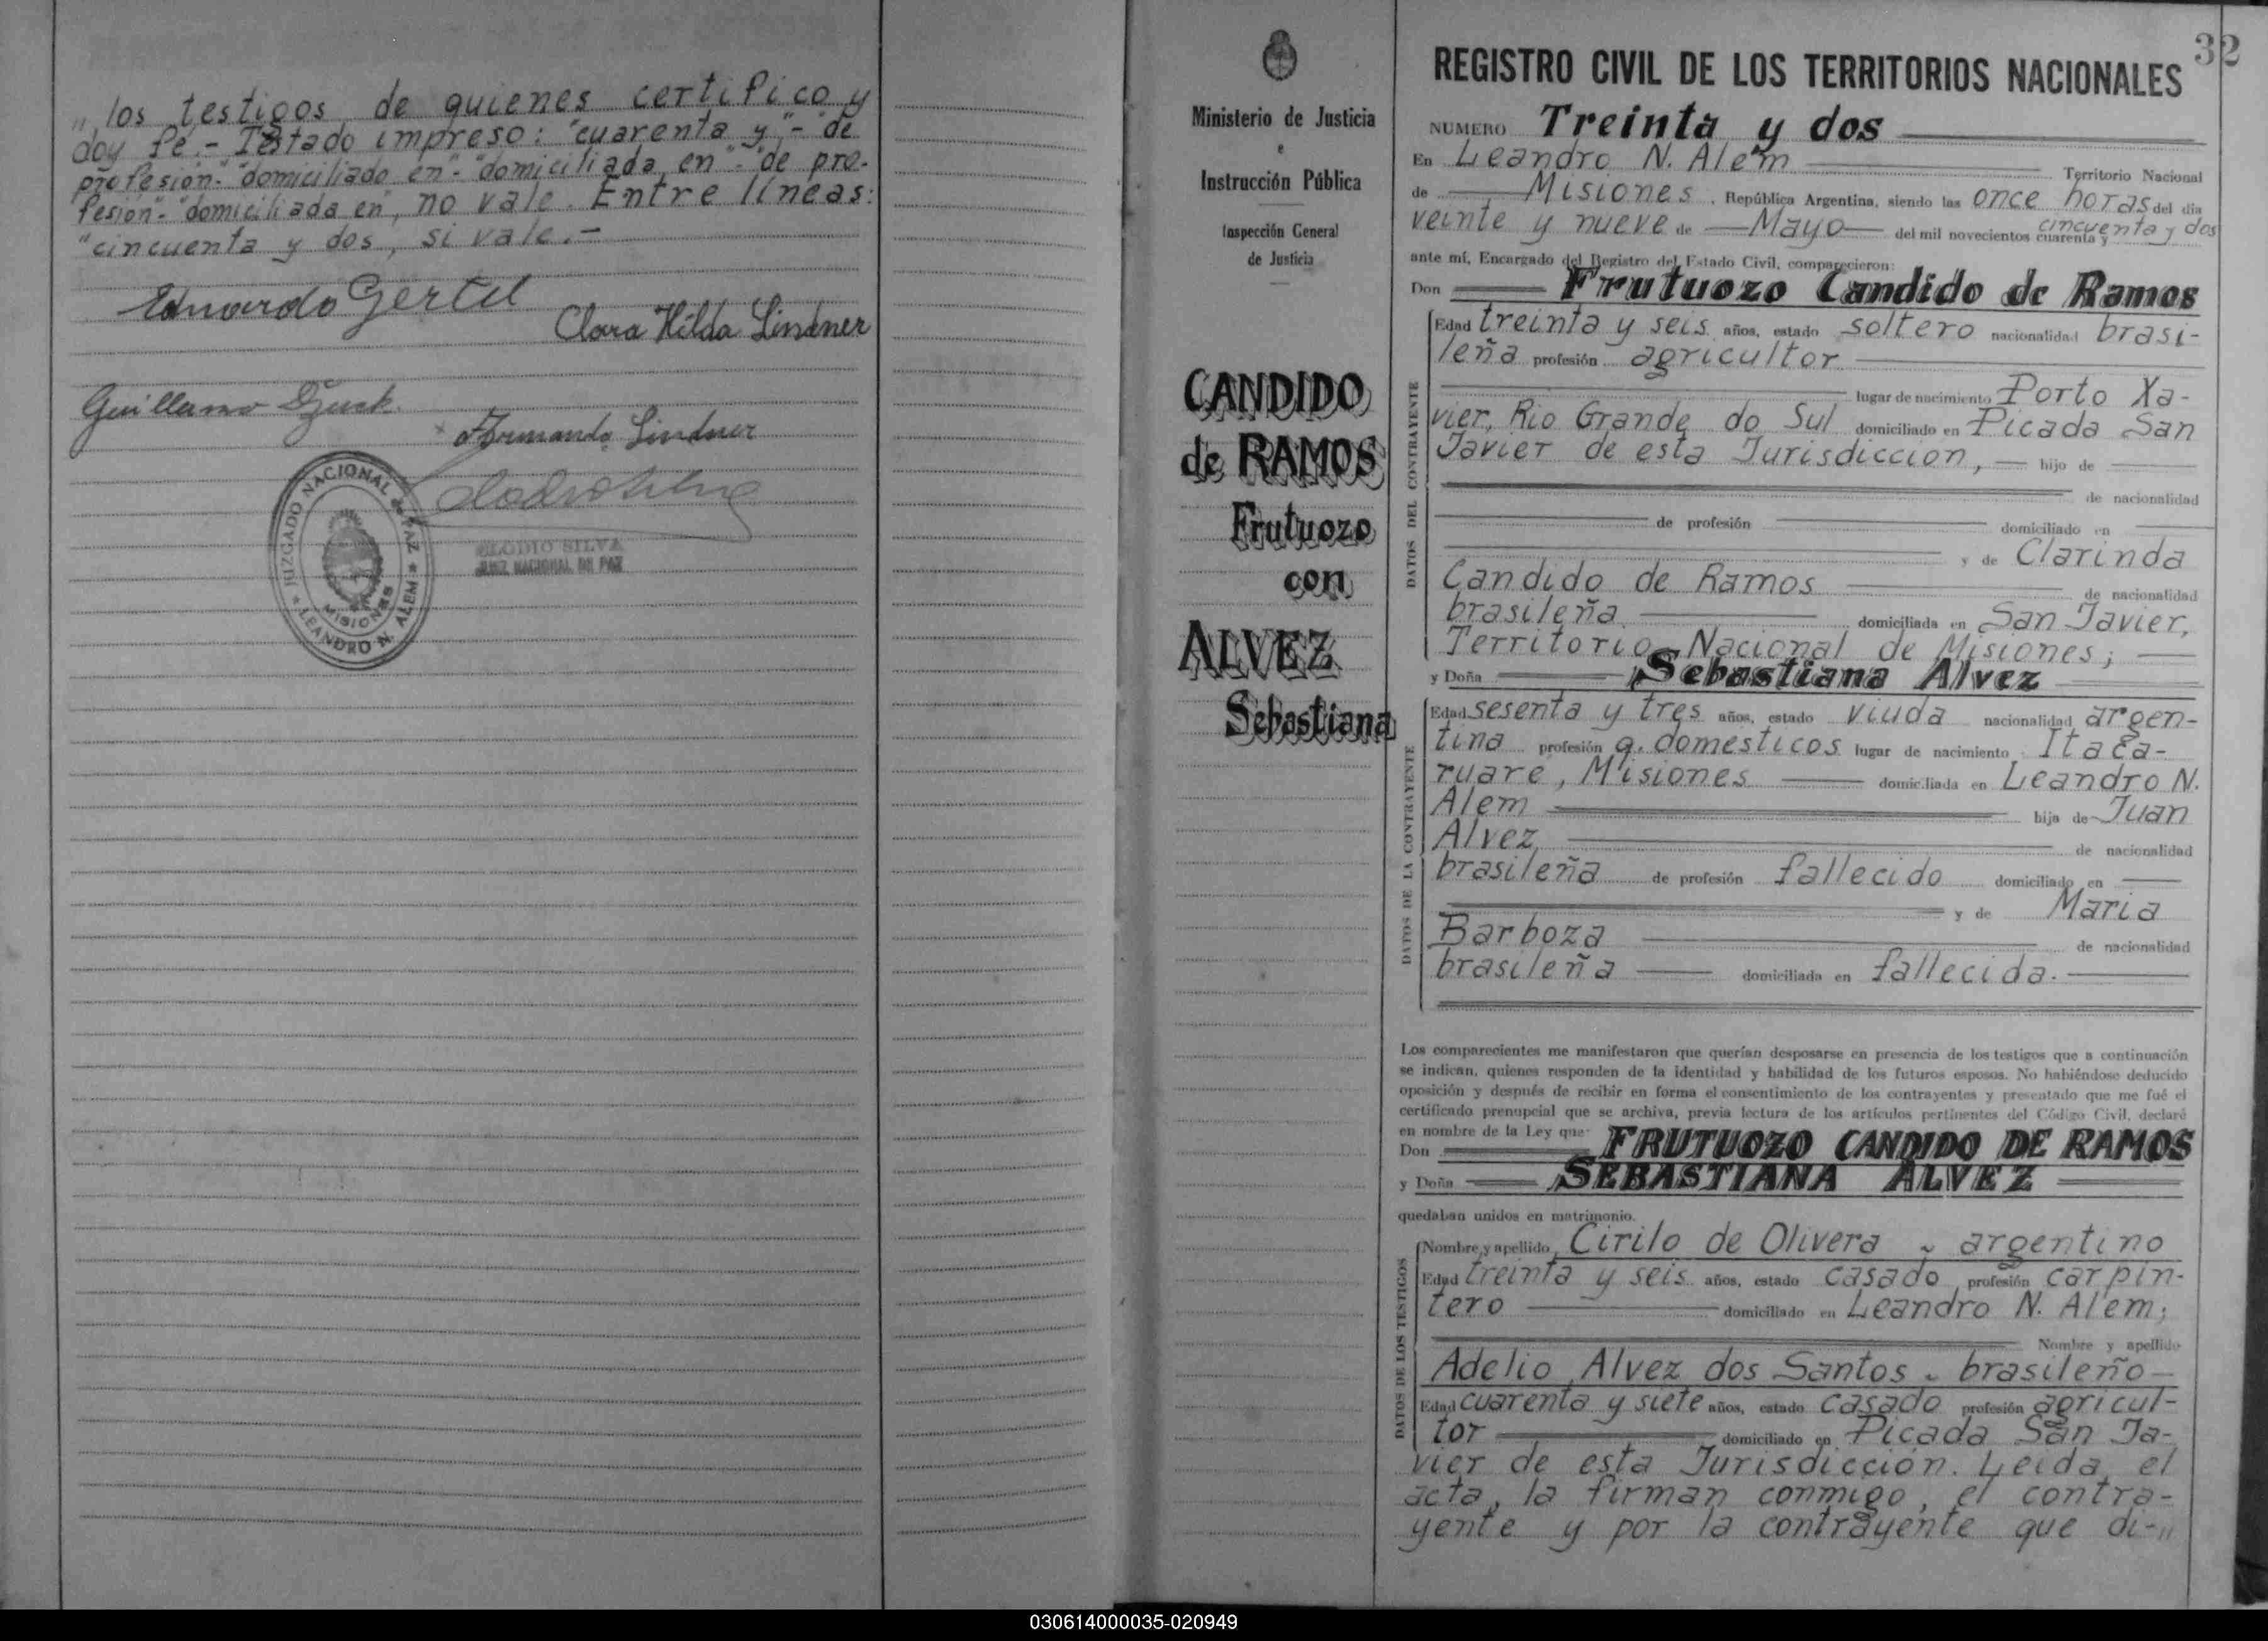 „ los testigos, de quienes certifico y
doy fé.- Testado impreso: "cuarenta y"- "de
profesión"- "domiciliado en"- "domiciliada en"- "de pro-
fesión"- "domiciliada en", no vale. Entre líneas:
"cincuenta y dos, si vale.-
Eduardo Gertel
Clara Hilda Lindner
Guillermo
Armando Lindner
JUZGADO NACIONAL de PAZ
MISIONES
LEANDRO N. ALEM
ELODIO SILVA
JUEZ NACIONAL DE PAZ
Ministerio de Justicia
e
Instrucción Pública
Inspección General
de Justicia
CANDIDO
de RAMOS
Frutuozo
con
ALVEZ
Sebastiana
32
REGISTRO CIVIL DE LOS TERRITORIOS NACIONALES
NUMERO Treinta y dos
En Leandro N. Alem Territorio Nacional
de Misiones, República Argentina, siendo las once horas del día
veinte y nueve de Mayo del mil novecientos cuarenta y cincuenta y dos
ante mí, Encargado del Registro del Estado Civil, comparecieron:
Don Frutuozo Candido de Ramos
DATOS DEL CONTRAYENTE
Edad treinta y seis años, estado soltero nacionalidad brasi-
leña profesión agricultor
lugar de nacimiento Porto Xa-
vier, Rio Grande do Sul domiciliado en Picada San
Javier de esta Jurisdicción, hijo de
de nacionalidad
de profesión domiciliado en
y de Clarinda
Candido de Ramos de nacionalidad
brasileña domiciliada en San Javier,
Territorio Nacional de Misiones;
y Doña Sebastiana Alvez
DATOS DE LA CONTRAYENTE
Edad sesenta y tres años, estado viuda nacionalidad argen-
tina profesión q. domesticos lugar de nacimiento Itaca-
ruare, Misiones domiciliada en Leandro N.
Alem hija de Juan
Alvez de nacionalidad
brasileña de profesión fallecido domiciliado en
y de Maria
Barboza de nacionalidad
brasileña domiciliada en fallecida.
Los comparecientes me manifestaron que querían desposarse en presencia de los testigos que a continuación
se indican, quienes responden de la identidad y habilidad de los futuros esposos. No habiéndose deducido
oposición y después de recibir en forma el consentimiento de los contrayentes y presentado que me fué el
certificado prenupcial que se archiva, previa lectura de los artículos pertinentes del Código Civil, declaré
en nombre de la Ley que:
Don FRUTUOZO CANDIDO DE RAMOS
y Doña SEBASTIANA ALVEZ
quedaban unidos en matrimonio.
DATOS DE LOS TESTIGOS
Nombre y apellido Cirilo de Olivera - argentino
Edad treinta y seis años, estado casado profesión carpin-
tero domiciliado en Leandro N. Alem;
Nombre y apellido
Adelio Alvez dos Santos - brasileño
Edad cuarenta y siete años, estado casado profesión agricul-
tor domiciliado en Picada San Ja-
vier de esta Jurisdicción. Leida el
acta, la firman conmigo, el contra-
yente y por la contrayente que di-„
030614000035-020949